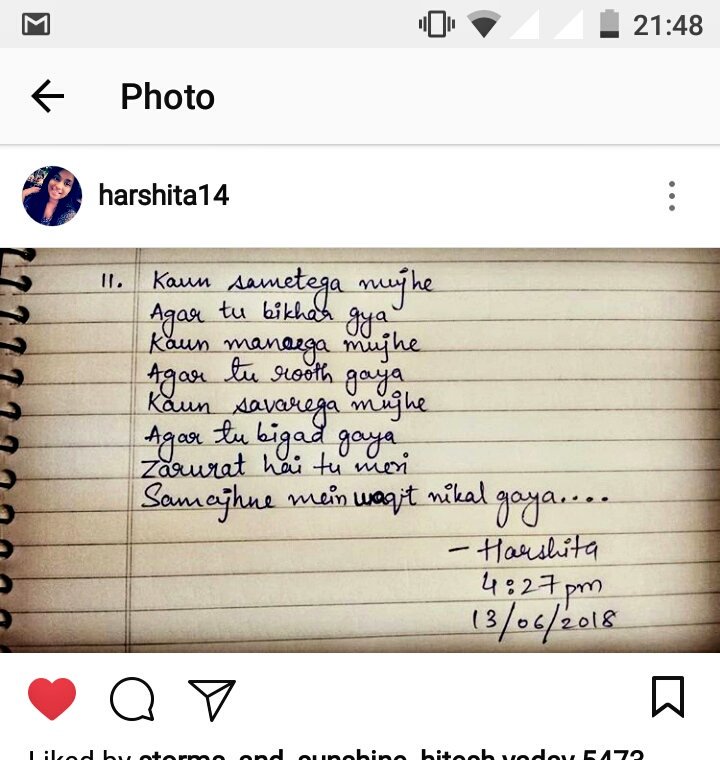 21:48
Photo
harshita14
11. Kaun sametega mujhe
Agar tu bikhar gya
Kaun manaega mujhe
Agar tu rooth gaya
Kaun savarega mujhe
Agar tu bigad gaya
Zarurat hai tu meri
Samajhne mein waqt nikal gaya....
- Harshita
4:27 pm
13/06/2018
Liked by storms_and_sunshine, hitesh.yadav.5473